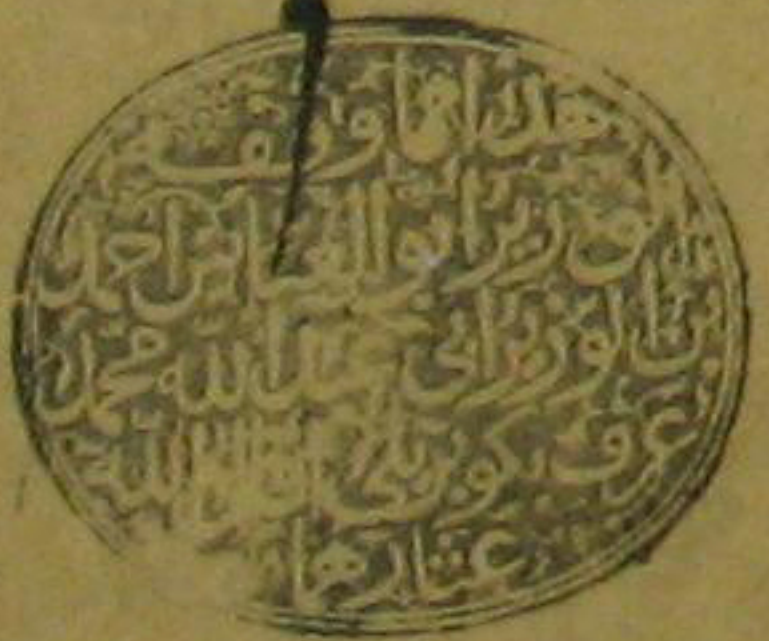 هذا مما وقفه
الوزير ابو العباس احمد
بن الوزير ابى عبد الله محمد
عرف بكوبريلى اقال الله
عثارهما